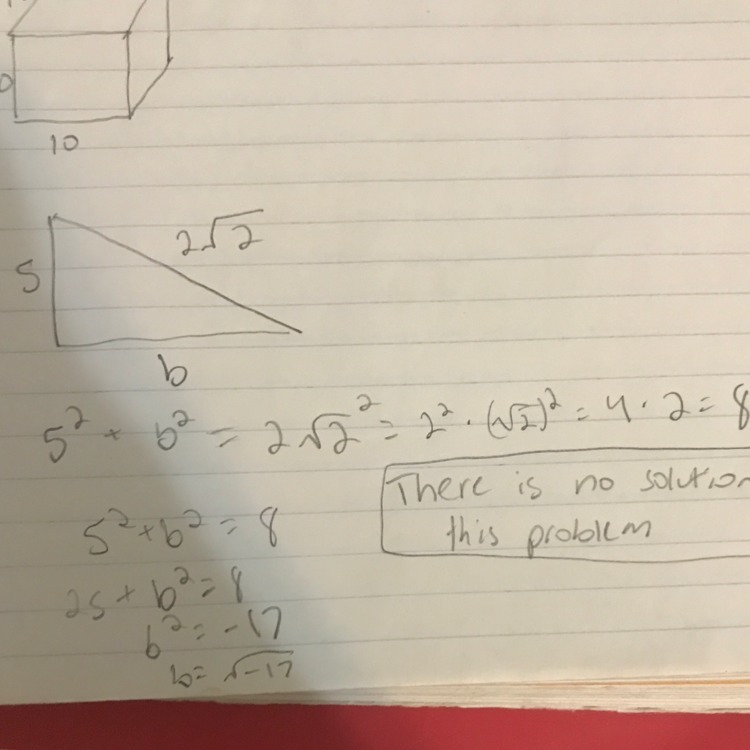 10
2√2
5
b
5² + b² = 2√2² = 2² · (√2)² = 4 · 2 = 8
There is no solution
this problem
5² + b² = 8
25 + b² = 8
b² = -17
b = √-17